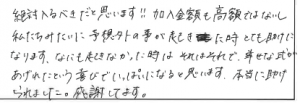 絶対入るべきだと思います!! 加入金額も高額ではないし
私たちみたいに予想外の事が起きた時とても助けに
なります。なにも起きなかった時はそれはそれで、幸せな式が
あげれたという喜びでいっぱいになると思います。本当に助け
られました。感謝してます。